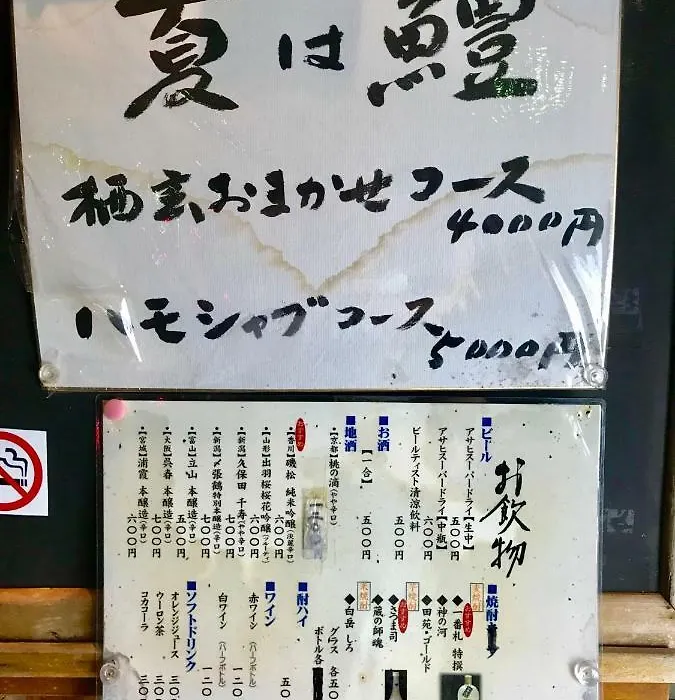 夏は鱧
栖玄おまかせコース
4000円
ハモシャブコース
5000円
お飲物
■ビール
アサヒスーパードライ【生中】
五〇〇円
アサヒスーパードライ【中瓶】
六〇〇円
ビールテイスト清涼飲料
五〇〇円
■お酒
【一合】
五〇〇円
■地酒
【京都】桃の滴(やや辛口)
おすすめ
【香川】磯松 純米吟醸(淡麗辛口)
六〇〇円
【山形】出羽桜桜花吟醸(フルーティ)
六〇〇円
【新潟】久保田 千寿(やや辛口)
七〇〇円
【新潟】〆張鶴特別本醸造(辛口)
七〇〇円
【富山】立山 本醸造(辛口)
五〇〇円
【大阪】呉春 本醸造(辛口)
七〇〇円
【宮城】浦霞 本醸造(辛口)
六〇〇円
■焼酎
麦焼酎
おすすめ
◆一番札 特撰
◆神の河
◆田苑・ゴールド
芋焼酎
おすすめ
◆さつま司
◆蔵の師魂
米焼酎
◆白岳 しろ
グラス 各五〇
ボトル各
■酎ハイ
五〇
■ワイン
赤ワイン(ハーフボトル)
一二〇
白ワイン(ハーフボトル)
一二〇
■ソフトドリンク
オレンジジュース
三〇
ウーロン茶
三〇
コカコーラ
三〇